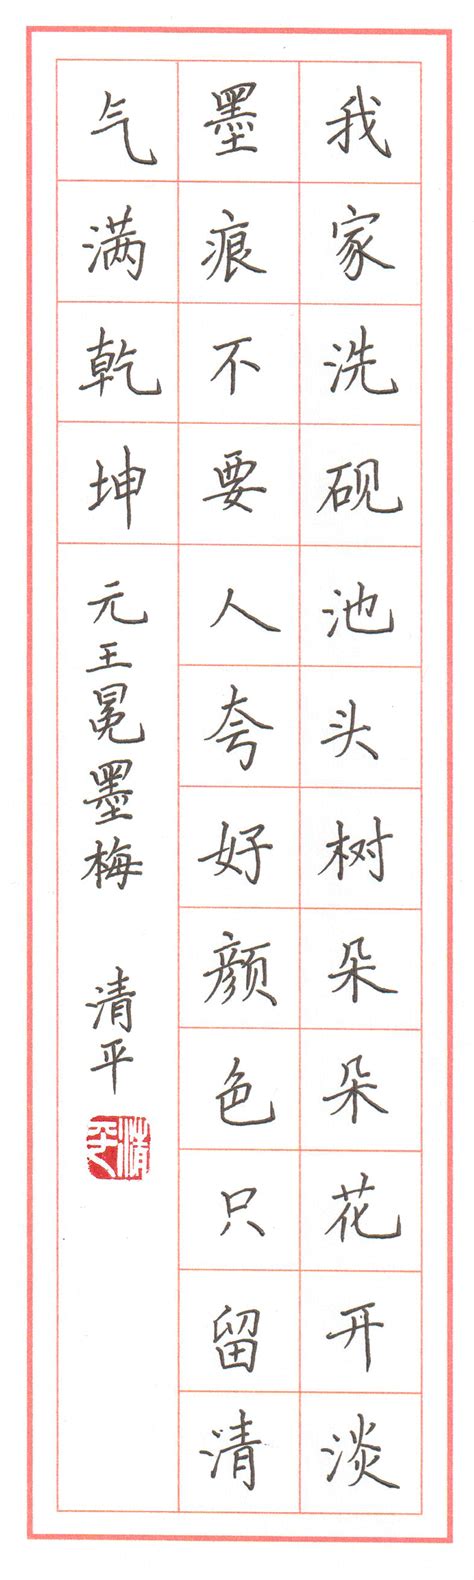 我家洗砚池头树朵朵花开淡
墨痕不要人夸好颜色只留清
气满乾坤
元王冕墨梅 清平
清平